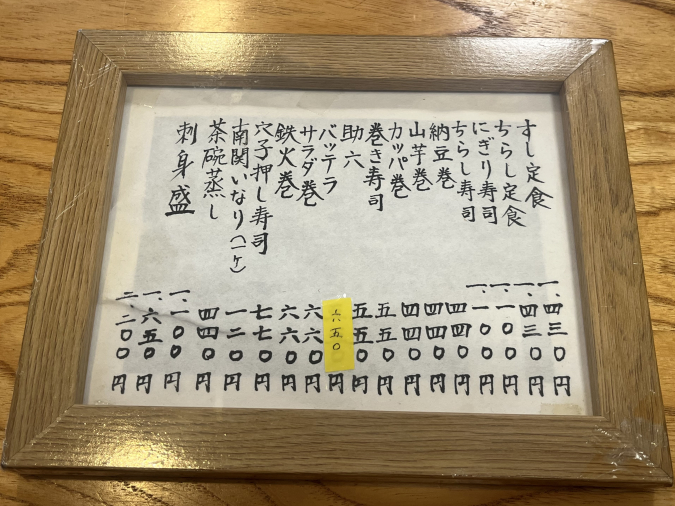 すし定食 一、四三〇円
ちらし定食 一、四三〇円
にぎり寿司 一、一〇〇円
ちらし寿司 一、一〇〇円
納豆巻 四四〇円
山芋巻 四四〇円
カッパ巻 四四〇円
巻き寿司 五五〇円
助六 五五〇円
バッテラ 六五〇円
サラダ巻 六六〇円
鉄火巻 六六〇円
穴子押し寿司 七七〇円
南関いなり(一ケ) 一二〇円
茶碗蒸し 四四〇円
刺身盛 一、一〇〇円
一、六五〇円
二、二〇〇円